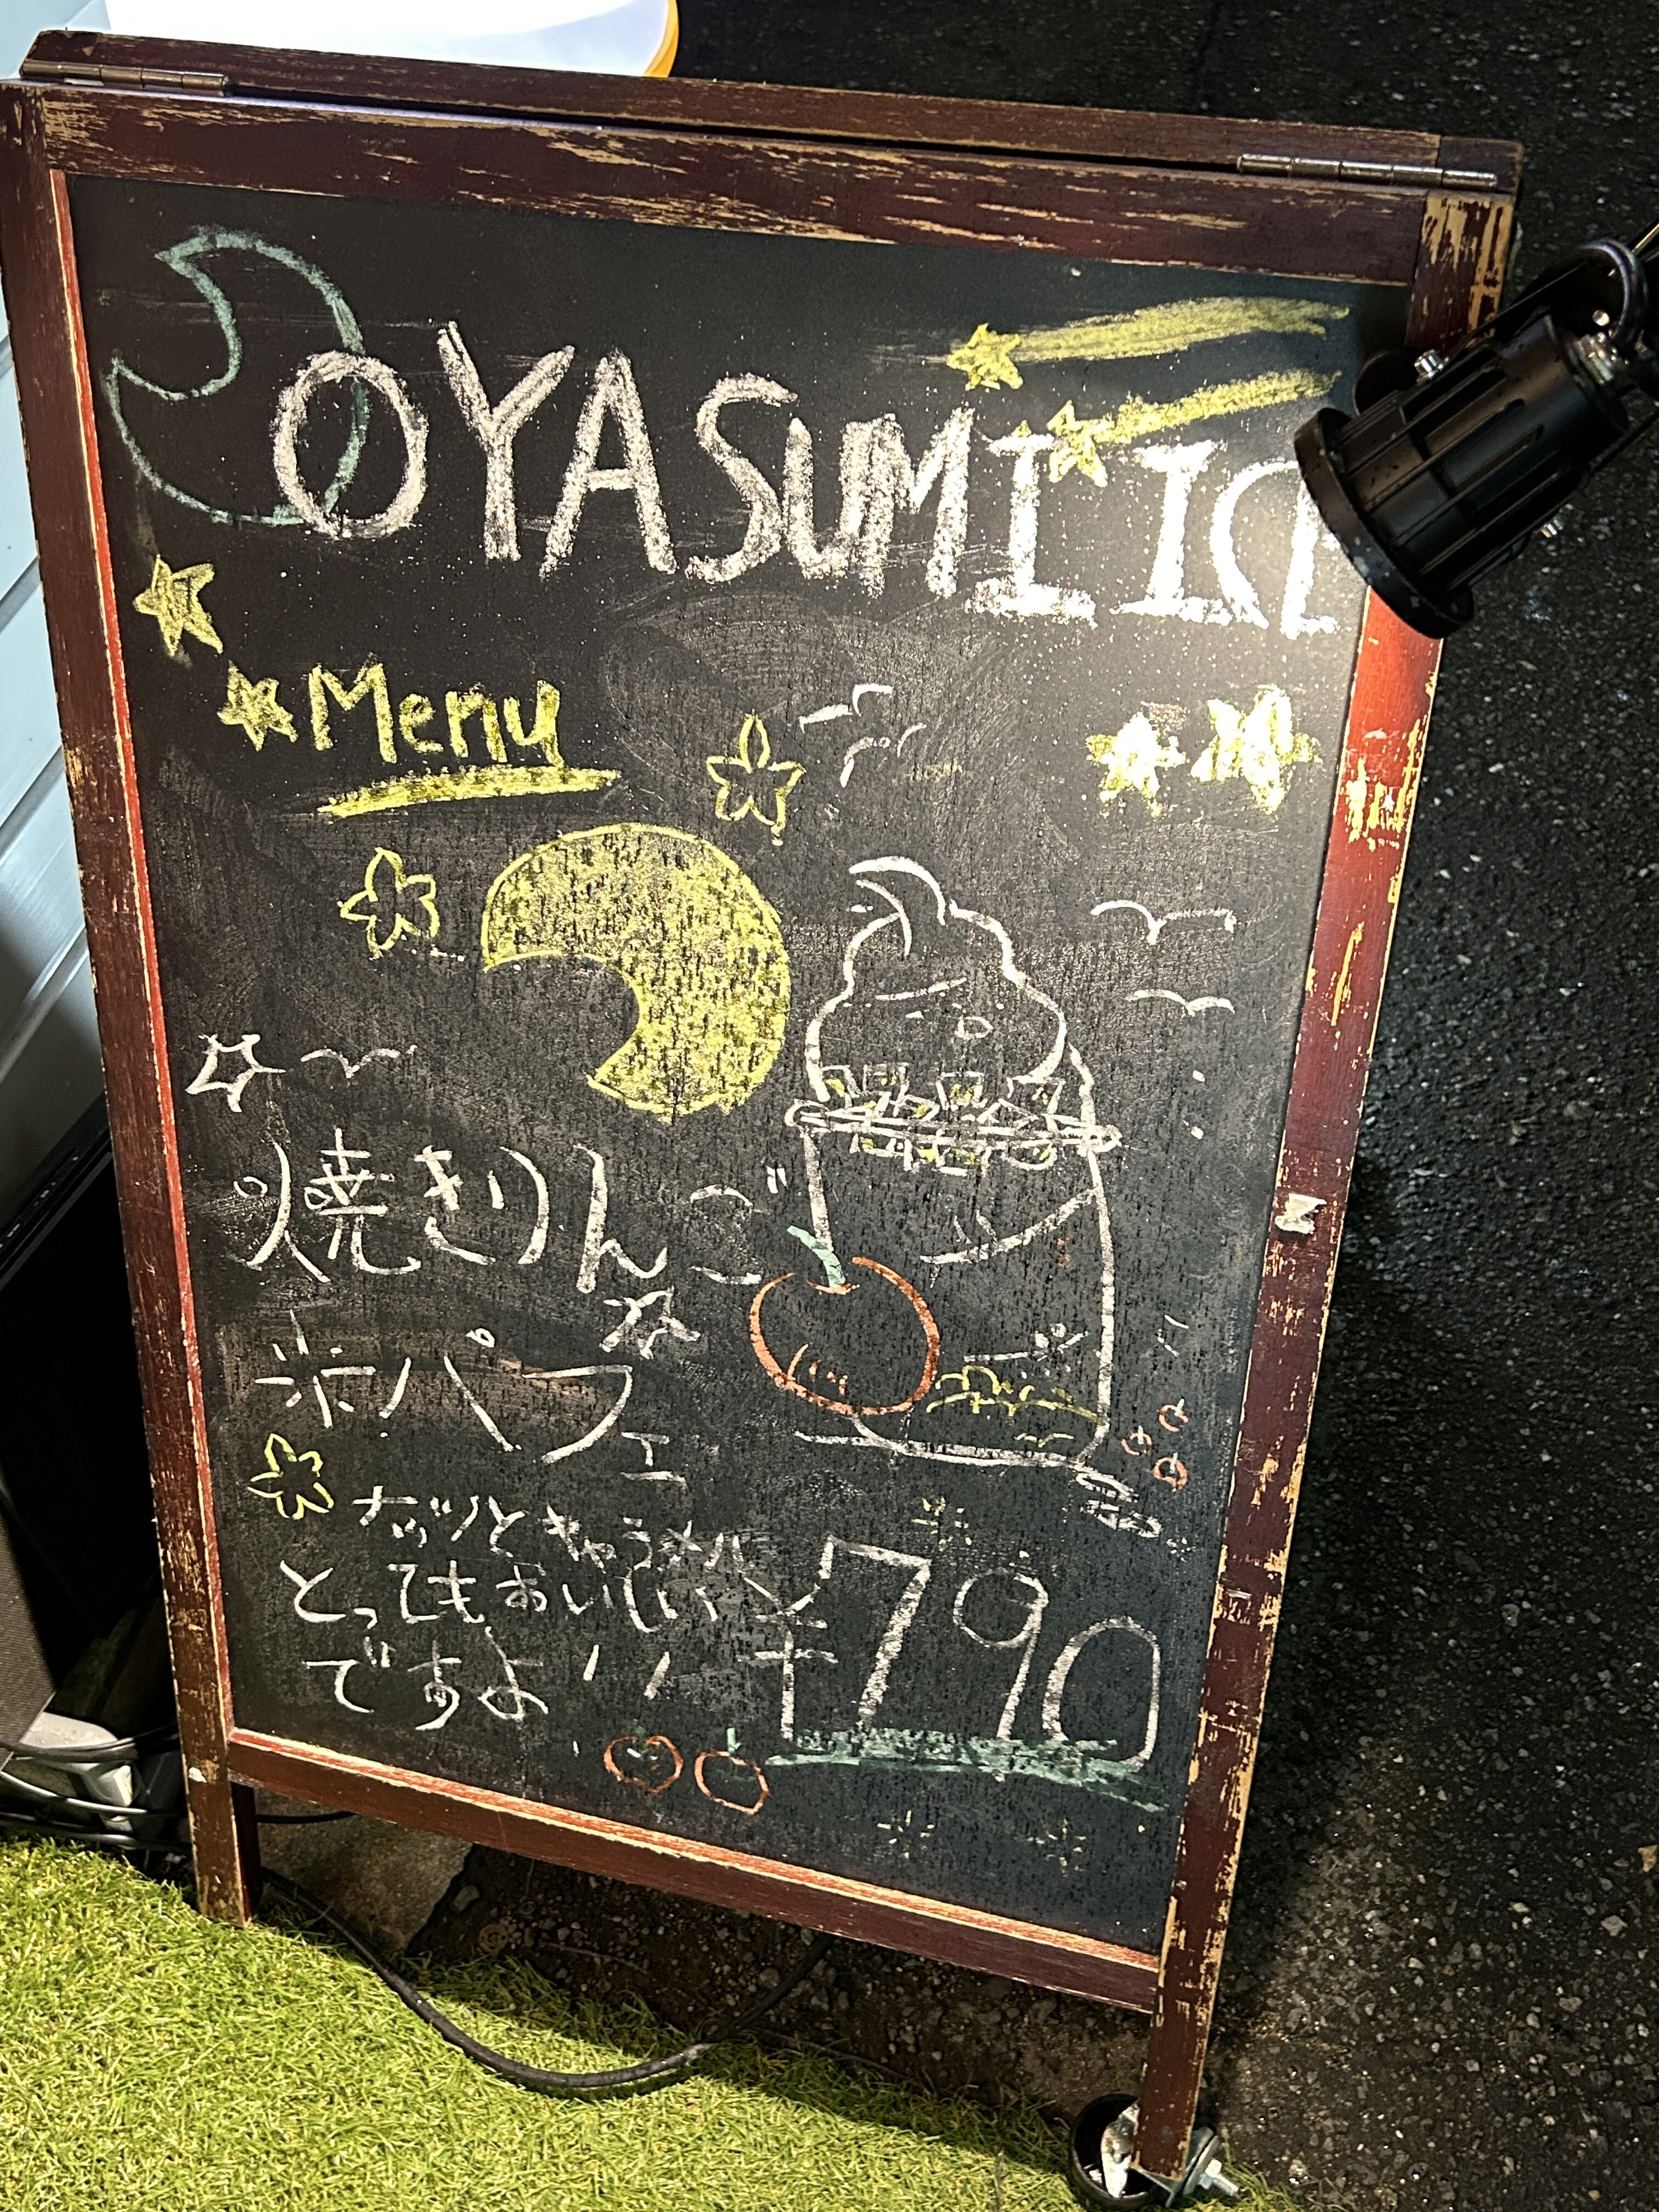 OYASUMI ICE
Menu
焼きりんご
パフェ
ナッツとキャラメルが
とってもおいしい
ですよ!!
¥790